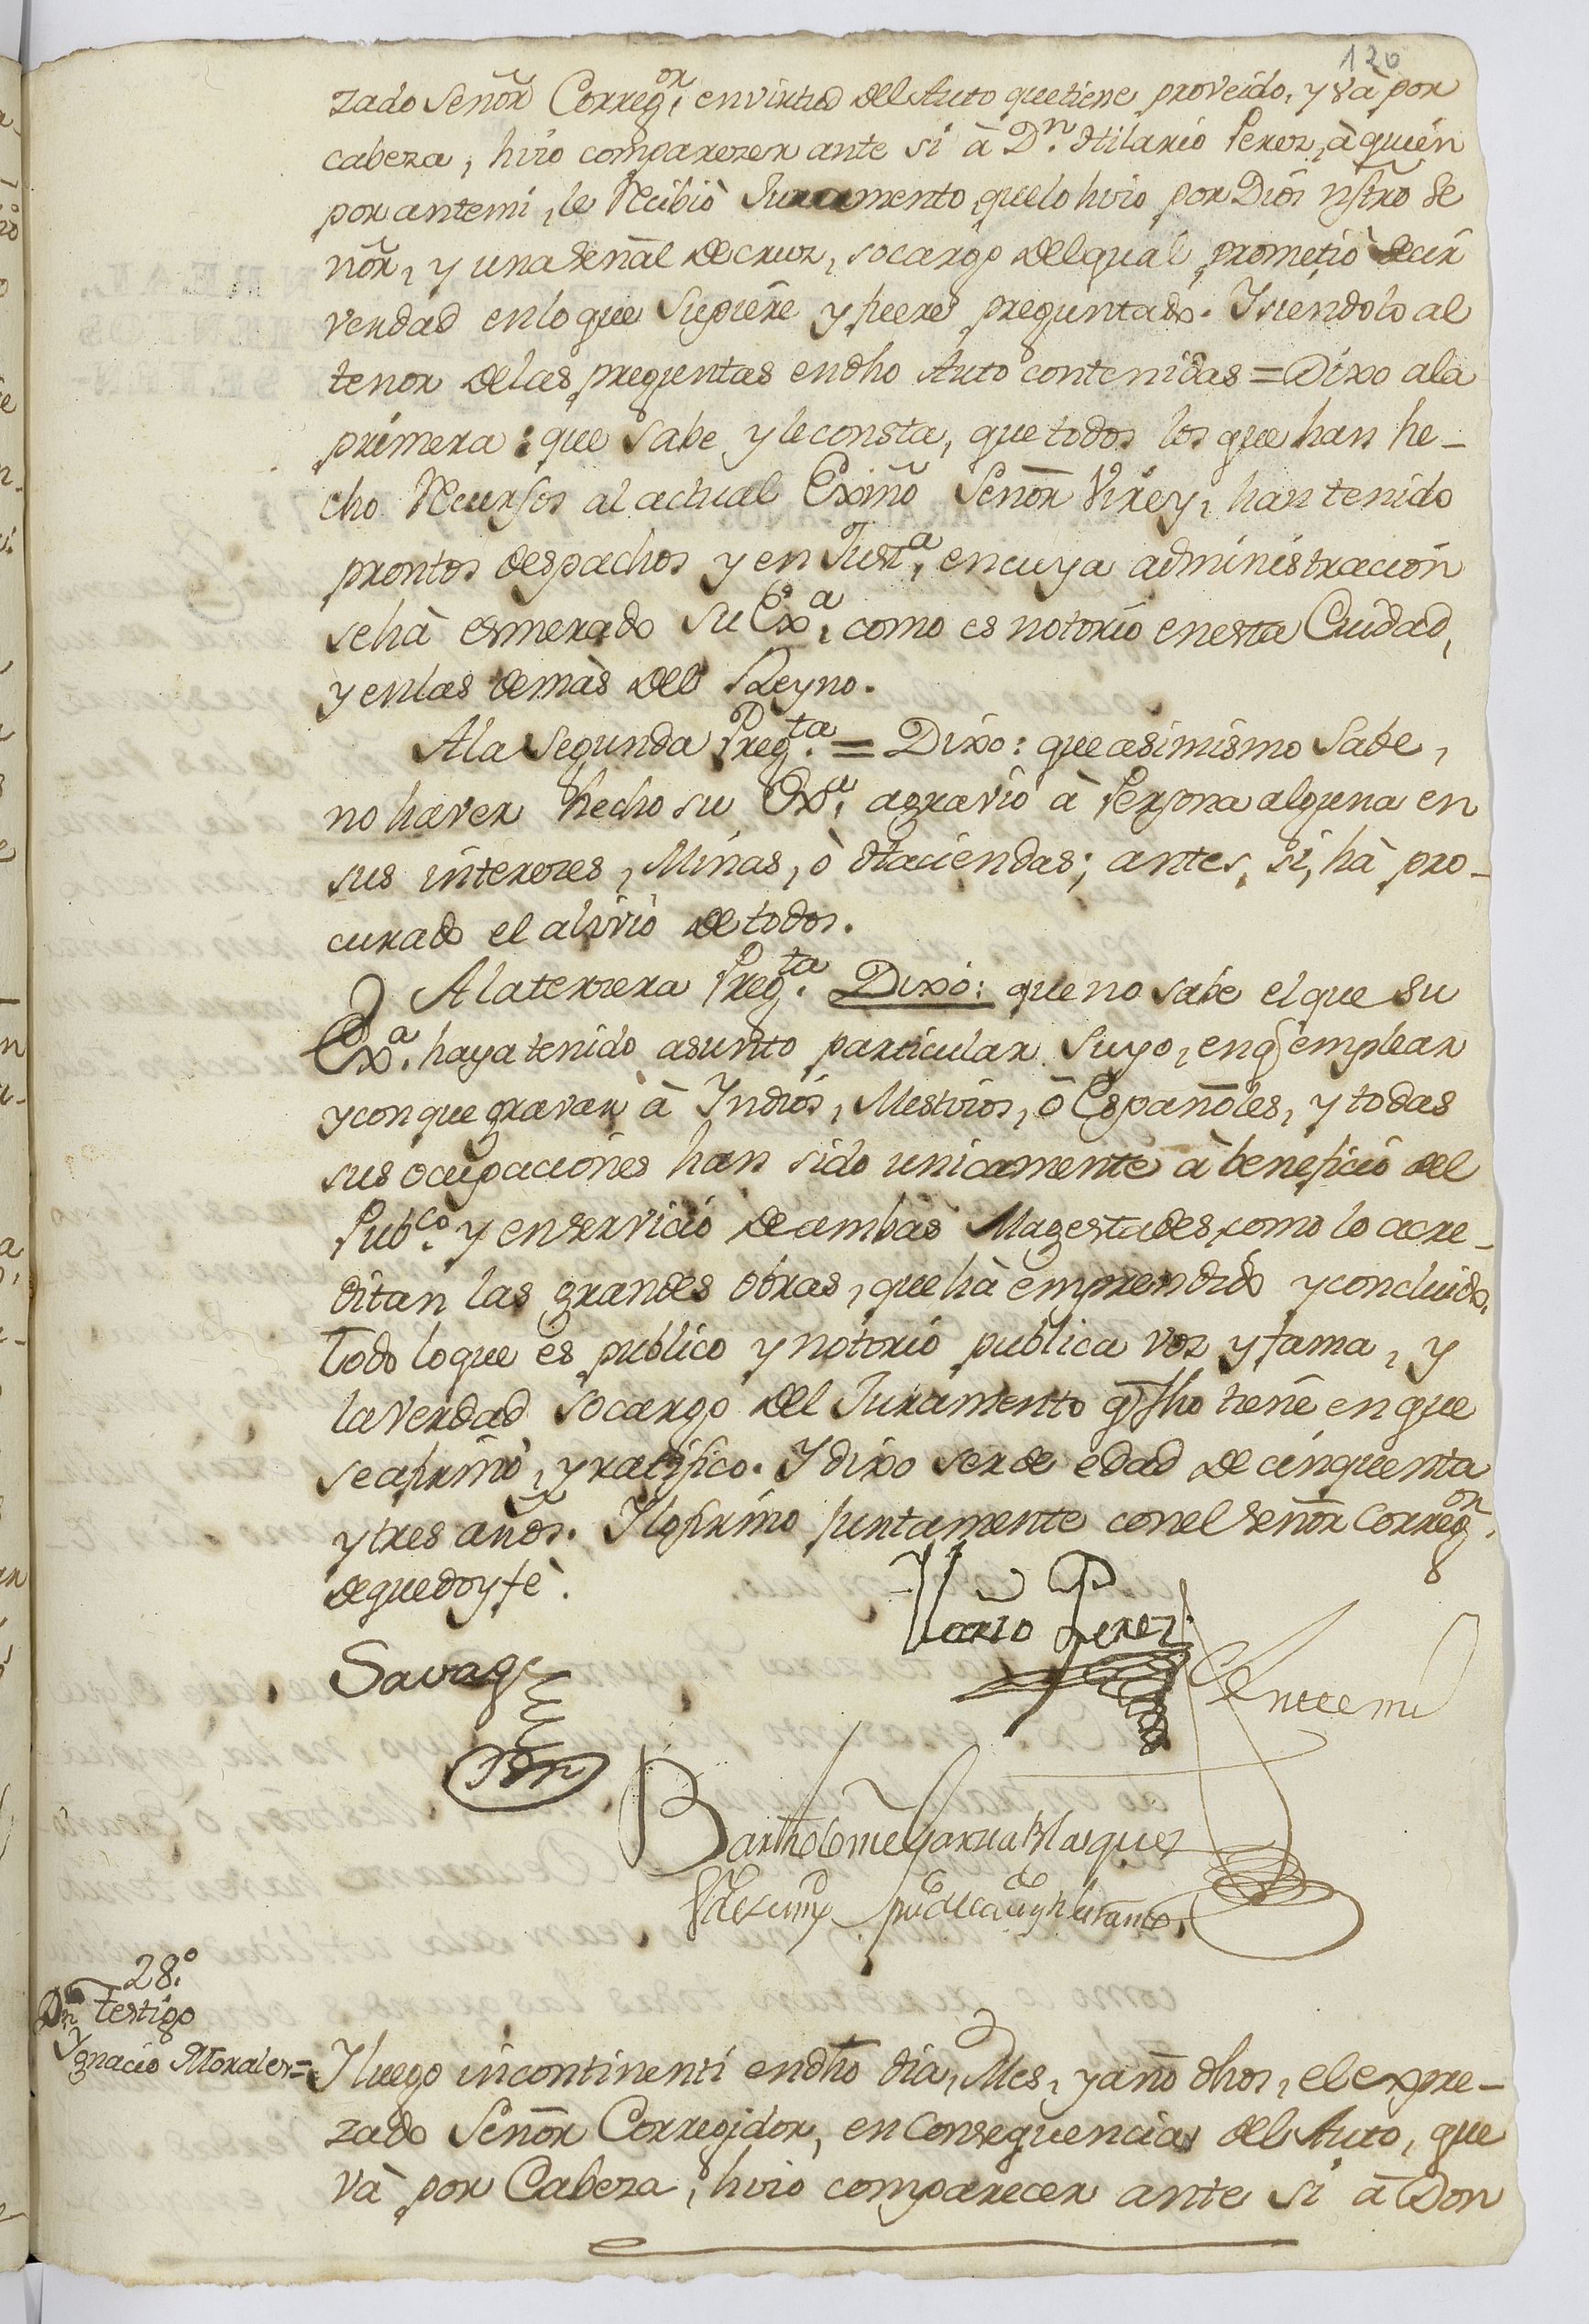 120
zado Señor Correg.or, en virtud del Auto que tiene proveido, y và por
cabeza, hizo comparezer ante si à D.n Hilario Perez, à quien
por antemi, le Recibiò Juramento, que lo hizo por Dios nr̃o Se
ñor, y una señal de cruz, so cargo del qual prometiò decir
verdad en lo que Supiere y fuere preguntado. Y siendolo al
tenor de las preguntas en dho Auto contenidas = Dixo a la
primera: que Sabe y le consta, que todos los que han he-
cho Recursos al actual Exmõ Señor Virey, han tenido
prontos despachos y en Just.a, en cuya administracion
se hà esmerado Su Ex.a, como es notorio en esta Ciudad,
y en las demàs del Reyno.
A la Segunda Preg.ta = Dixo: que asimismo Sabe,
no haver hecho su Ex.a, agravio à Persona alguna en
sus interezes, Minas, ò Haciendas; antes, si, hà pro-
curado el alivio de todos.
A la terzera Preg.ta Dixo: que no sabe el que su
Ex.a haya tenido asunto particular Suyo, en q̃ emplear
y con que gravar à Indios, Mestizos, ò Españoles, y todas
sus ocupaciones han sido unicamente à beneficio del
Pub.co y en servicio de ambas Magestades, como lo acre-
ditan las grandes obras, que hà emprendido y concluido.
Todo lo que es publico y notorio publica voz y fama, y
la verdad so cargo del Juramento q̃ fho tiene en que
se afirmò, y ratifico. Y dixo ser de edad de cinquenta
y tres años. Y lo firmo juntamente con el Señor Correg.or
de que doy fè.
Ylario Perez
Savage
Ante mi
Bartholome Garcia Blasquez
28.o
Testigo
Dn
Ygnacio Morales =
Y luego incontinenti en dho dia, Mes, y año dhos, el expre-
zado Señor Corregidor, en Consequencia del Auto, que
và por Cabeza, hizo comparecer ante si à Don